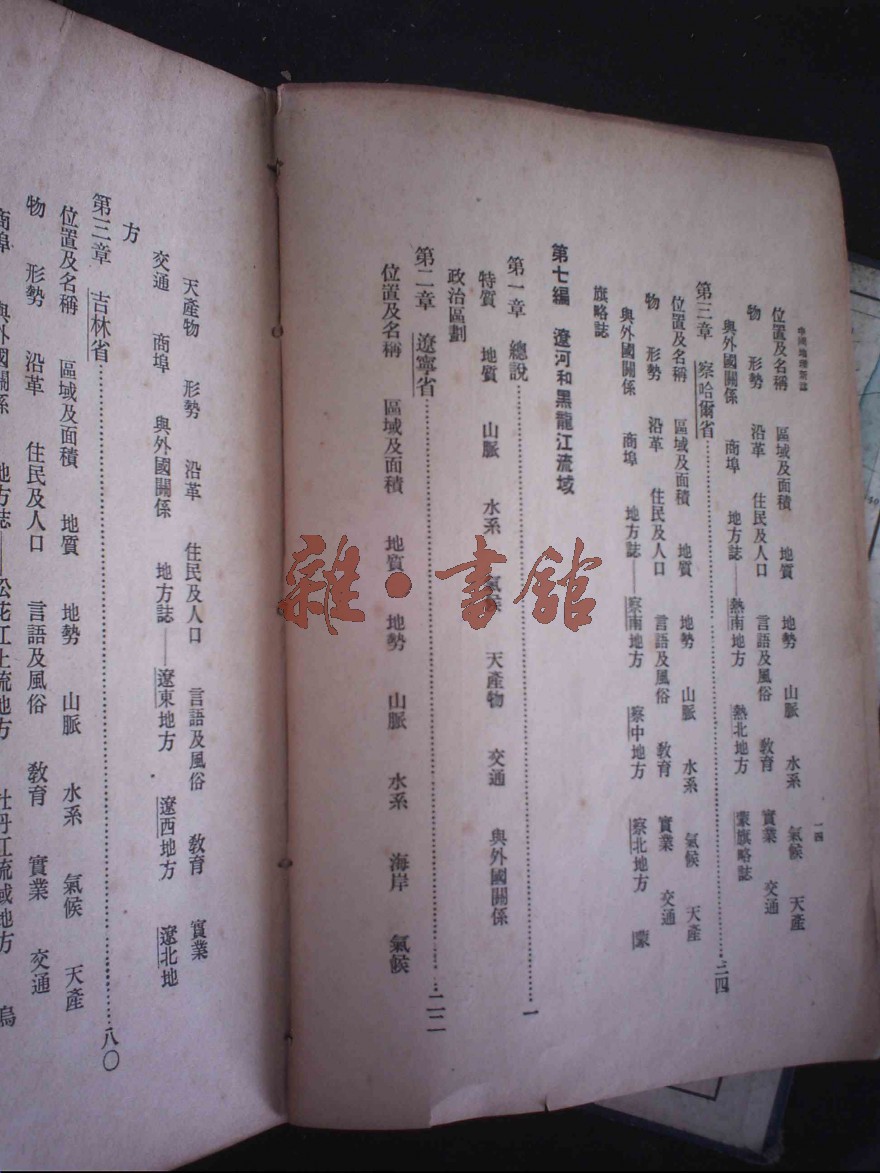 中國地理新誌
一四
位置及名稱 區域及面積 地質 地勢 山脈 水系 氣候 天產
物 形勢 沿革 住民及人口 言語及風俗 教育 實業 交通
與外國關係 商埠 地方誌——熱南地方 熱北地方 蒙旗略誌
第三章 察哈爾省……二四
位置及名稱 區域及面積 地質 地勢 山脈 水系 氣候 天產
物 形勢 沿革 住民及人口 言語及風俗 教育 實業 交通
與外國關係 商埠 地方誌——察南地方 察中地方 察北地方 蒙
旗略誌
第七編 遼河和黑龍江流域
第一章 總說……一
特質 地質 山脈 水系 氣候 天產物 交通 與外國關係
政治區劃
第二章 遼寧省……二二
位置及名稱 區域及面積 地質 地勢 山脈 水系 海岸 氣候
天產物 形勢 沿革 住民及人口 言語及風俗 教育 實業
交通 商埠 與外國關係 地方誌——遼東地方 遼西地方 遼北地
方
第三章 吉林省……八〇
位置及名稱 區域及面積 地質 地勢 山脈 水系 氣候 天產
物 形勢 沿革 住民及人口 言語及風俗 教育 實業 交通
商埠 與外國關係 地方誌——松花江上流地方 牡丹江流域地方 烏
雜·書館